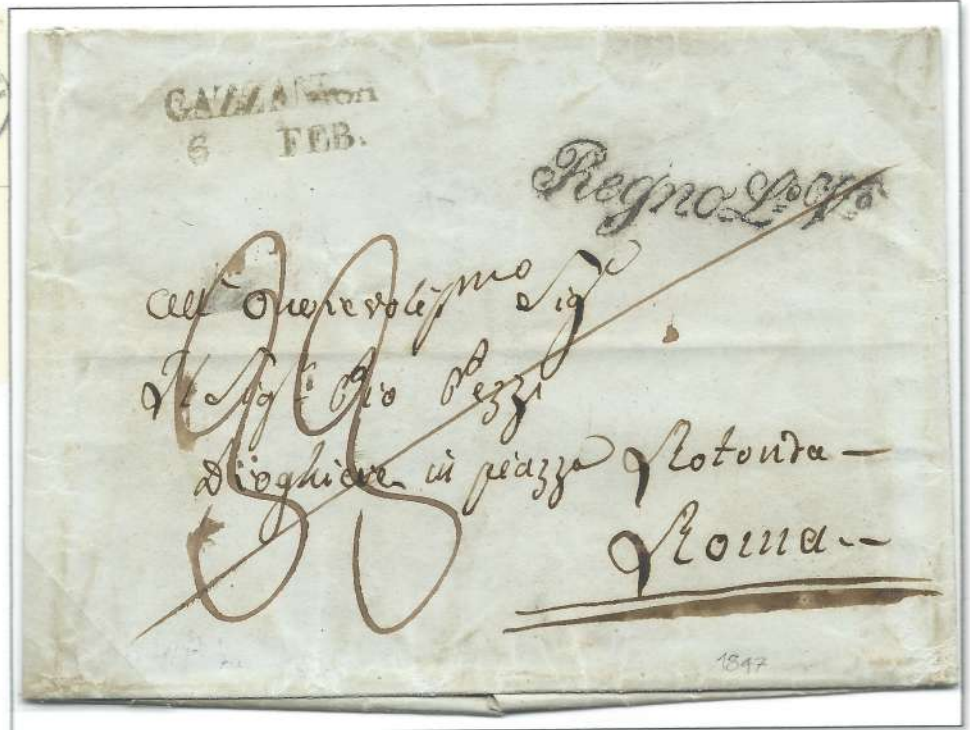 GAZZANIGA
6 FEB.
Regno L.º V.º
All' Onorevolissimo Sig
Il Sig. Pio Pezzi
Droghiere in piazza Rotonda —
Roma.--
1847